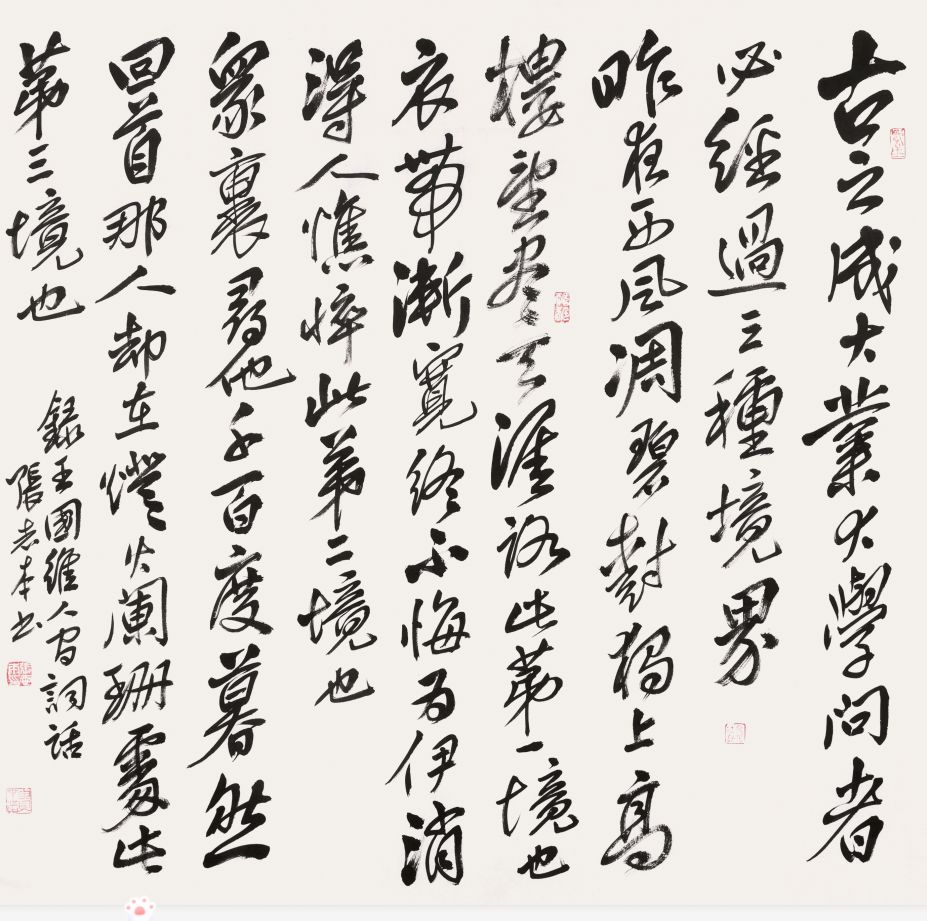 古之成大業大學問者
必經過三種境界
昨夜西風凋碧樹獨上高
樓望盡天涯路此第一境也
衣帶漸寬終不悔為伊消
得人憔悴此第二境也
眾裏尋他千百度暮然
回首那人却在燈火闌珊處此
第三境也
錄王國維人間詞話
張志本書